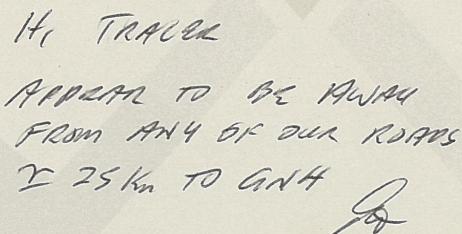 Hi TRACER
APPEAR TO BE AWAY
FROM ANY OF OUR ROADS
25 Km TO GNH